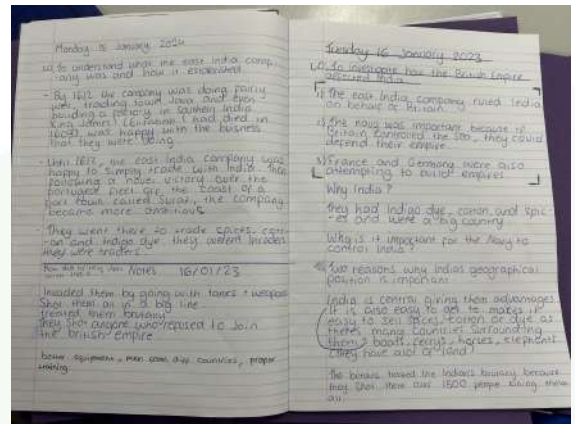 Monday 15 January 2024
LO To understand what the east India comp-
any was and how it expanded.
- By 1612 the company was doing fairly
well, trading Java and even
building a factory in southern India
King James I (Elizabeth I had died in
1603) was happy with the business
that they were doing
- Until 1612, the east India company was
happy to simply trade with India. Then
following a naval victory over the
portugese fleet off the coast of a
port town called Surat, the company
became more ambitious
- They went there to trade spices, cott-
on and indigo dye. they werent invaders
they were traders.
Notes 16/01/23
Invaded them by going with tanks + weapons
Shot them all in a big line
treated them brutally
They shot anyone who refused to join
the british empire
better equipment, men from diff countries, proper
training.
Tuesday 16 January 2023
LO To investigate how the British Empire
1) The east India company ruled India
on behalf of Britain.
2) The navy was important because if
Britain controlled the sea, they could
defend their empire.
3) France and Germany were also
attempting to build empires
Why India?
They had Indigo dye, cotton, and spic-
es and were a big country
Why is it important for the Navy to
control India?
Two reasons why Indias geographical
position is important
India is central giving them advantages
It is also easy to get to makes it
easy to sell spices, cotton or dye as
theres many countries surrounding
them, boats, ferrys, horses, elephants
(they have alot of land)
The british treated the Indians brutally because
they shot them and 1500 people killing them
all.